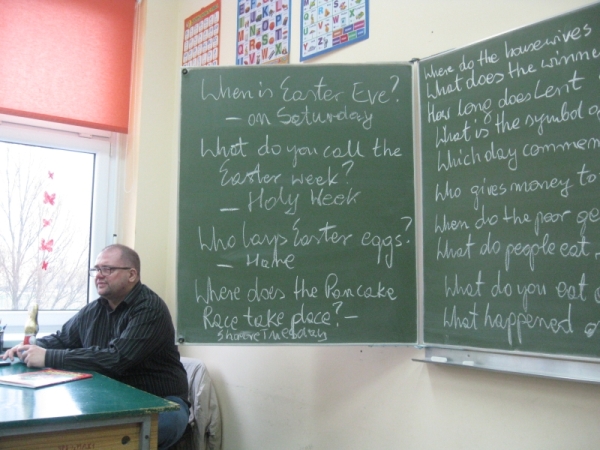 When is Easter Eve?
– on Saturday
What do you call the
Easter week?
– Holy Week
Who lays Easter eggs?
– Hare
Where does the Pancake
Race take place? –
Tuesday
Where do the housewives
What does the winner
How long does Lent
What is the symbol of
Which day commem
Who gives money to
When do the poor ge
What do people eat
What do you eat
What happened